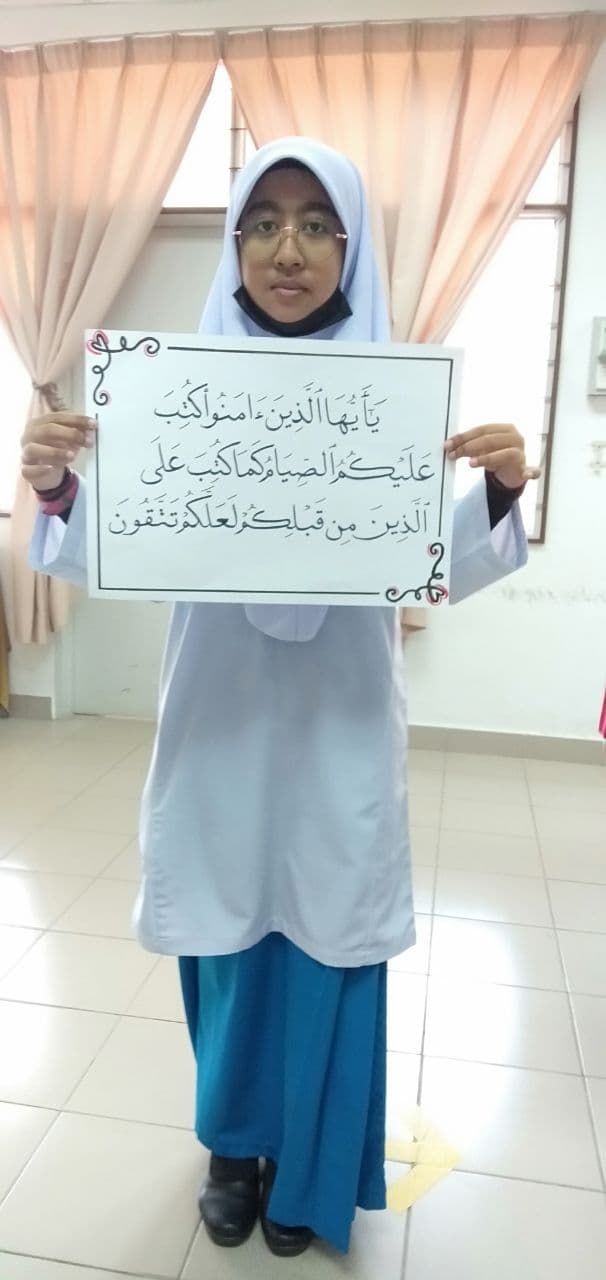 يَٰٓأَيُّهَا ٱلَّذِينَ ءَامَنُوا۟ كُتِبَ
عَلَيْكُمُ ٱلصِّيَامُ كَمَا كُتِبَ عَلَى
ٱلَّذِينَ مِن قَبْلِكُمْ لَعَلَّكُمْ تَتَّقُونَ